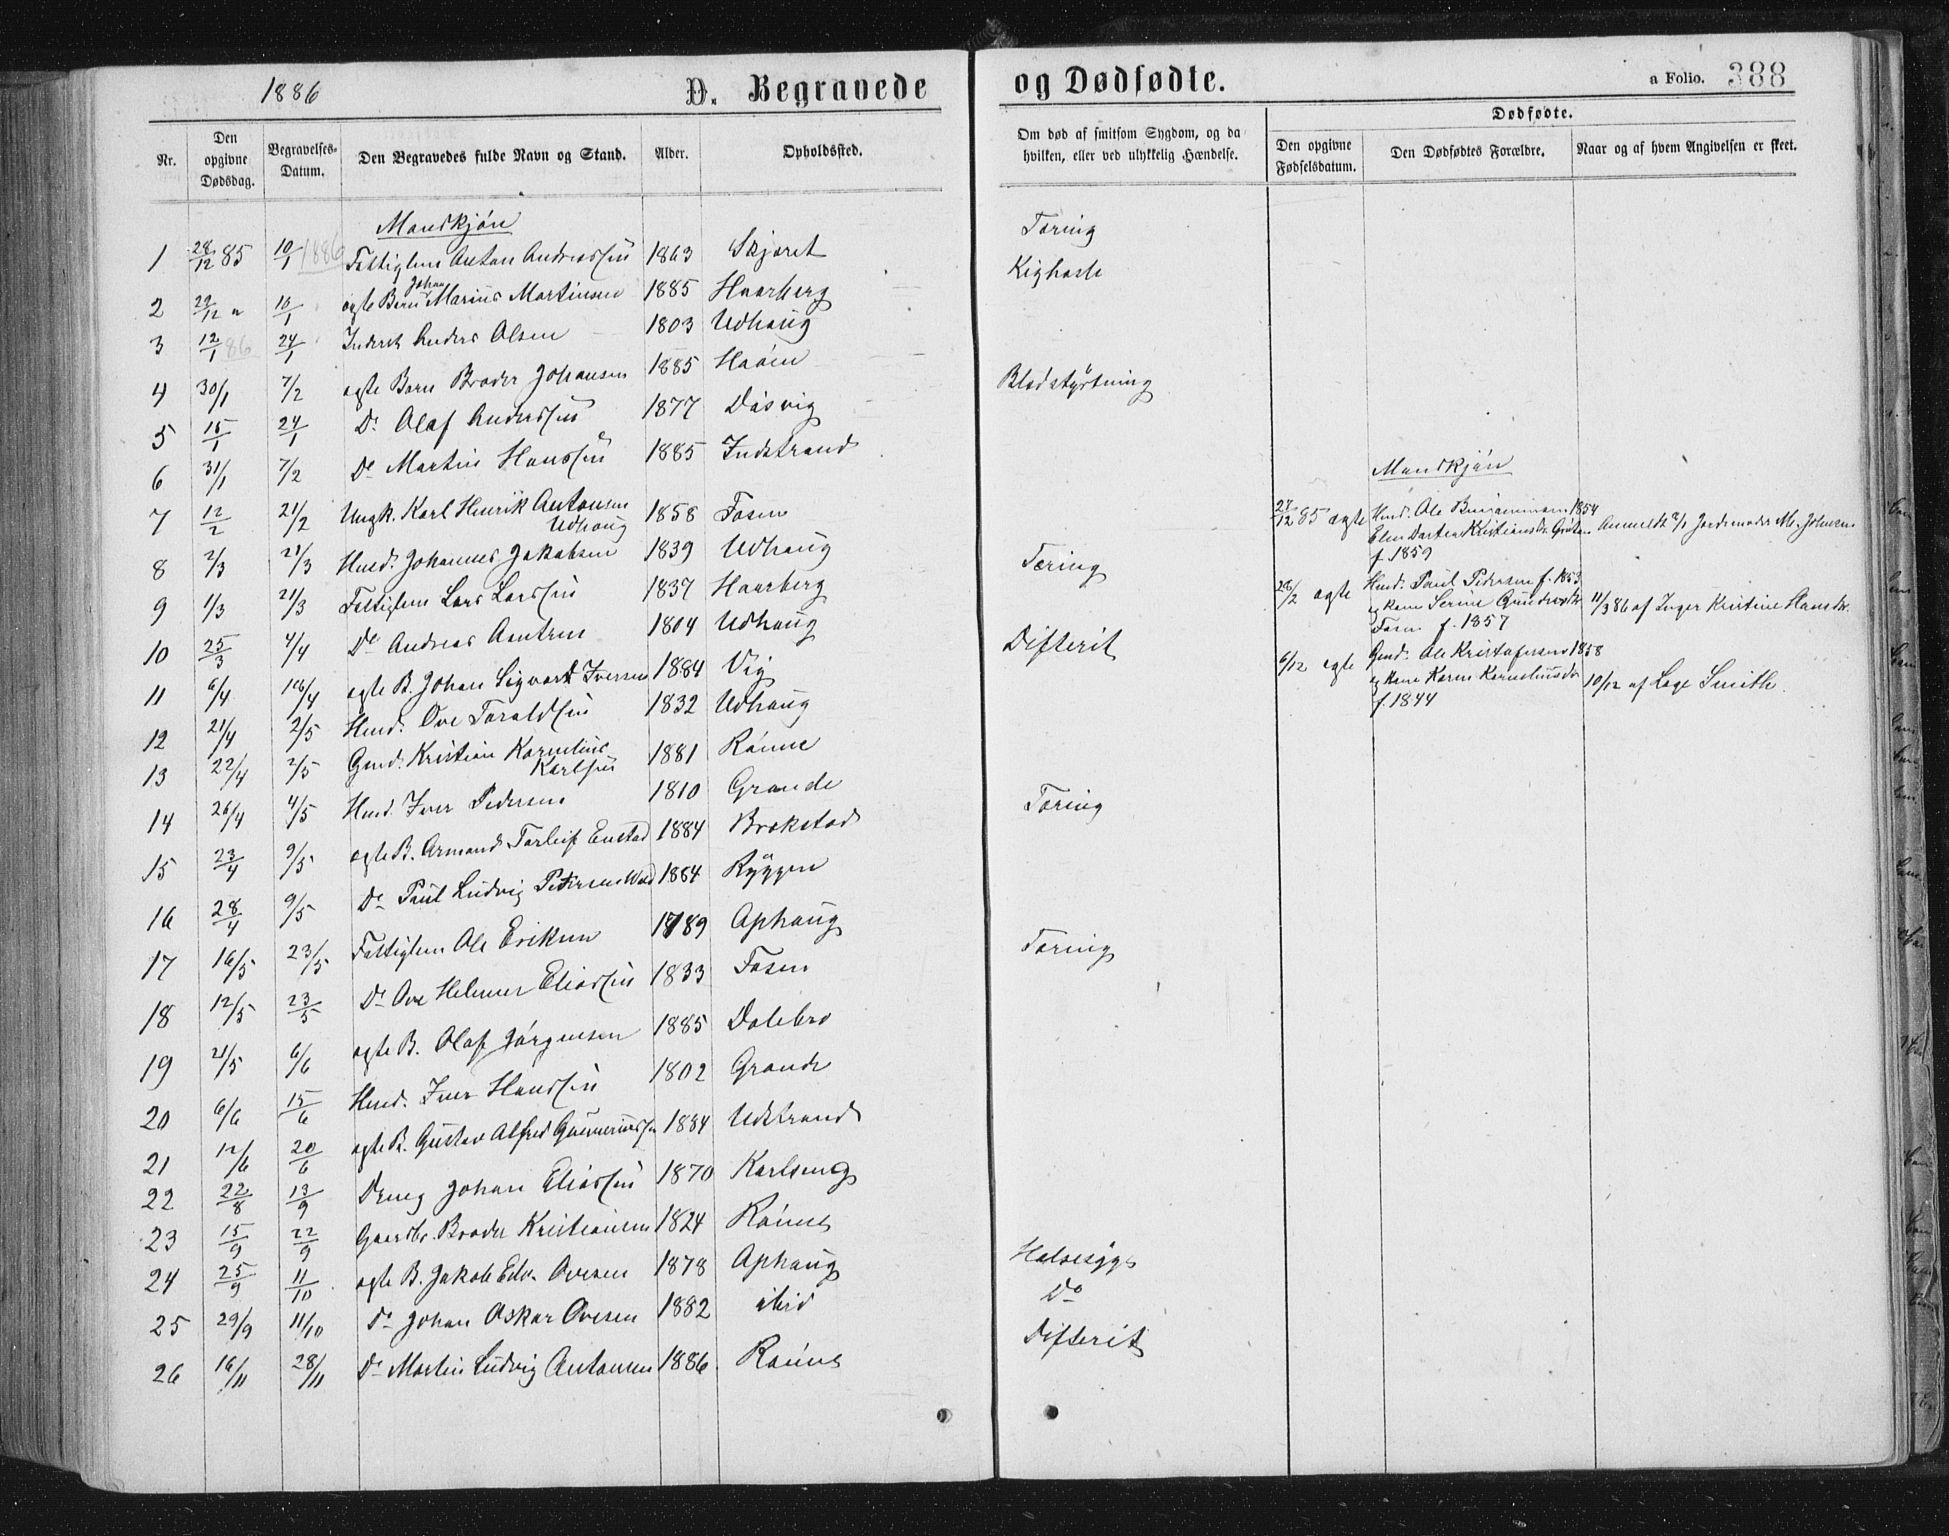 1886
D. Begravede og Dødfødte.
a Folio. 388
Nr.
Den opgivne Dødsdag.
Begravelses-Datum.
Den Begravedes fulde Navn og Stand.
Alder.
Opholdssted.
Om død af smitsom Sygdom, og da hvilken, eller ved ulykkelig Hændelse.
Dødfødte.
Den opgivne Fødselsdatum.
Den Dødfødtes Forældre.
Naar og af hvem Angivelsen er skeet.
Mandkjøn
1 28/12 85 10/1 1886 Fattiglem Anton Andreassen 1863 Skjøret Tæring
2 29/12 " 10/1 ægte Barn Johan Marius Martinsen 1885 Haarberg Kighoste
3 12/1 86 24/1 Inderst Anders Olsen 1803 Udhaug
4 30/1 7/2 ægte Barn Broder Johansen 1885 Haøen
5 15/1 24/1 Do Olaf Anderssen 1877 Døsvig Blodstyrtning
6 31/1 7/2 Do Martin Hanssen 1885 Indstrand
7 12/2 21/2 Ungk. Karl Henrik Antonsen Udhaug 1858 Fosen
8 2/3 21/3 Hmd. Johannes Jakobsen 1839 Udhaug
9 1/3 21/3 Fattiglem Lars Larssen 1837 Haarberg Tæring
10 25/3 4/4 Do Andreas 1804 Udhaug
11 6/4 26/4 ægte B. Johan Sigvart Iversen 1884 Vig Difterit
12 21/4 2/5 Hmd. Ove Toraldsen 1832 Udhaug
13 22/4 2/5 Gmd. Kristian Kornelius Karlsen 1881 Rønne
14 26/4 4/5 Hmd. Iver Pedersen 1810 Grande
15 23/4 9/5 ægte B. Armand Torleif Enstad 1884 Brekstad Tæring
16 28/4 9/5 Do Paul Ludvig Pedersen 1884 Ryggen
17 16/5 23/5 Fattiglem Ole Eriksen 1789 Ophaug
18 12/5 23/5 Do Ove Helmer Eliassen 1833 Fosen Tæring
19 21/5 6/6 ægte B. Olaf Jørgensen 1885 Dalebro
20 6/6 15/6 Hmd. Iver Hanssen 1802 Grande
21 12/6 20/6 ægte B. Gustav Alfred Gunneriussen 1884 Udstrand
22 22/8 13/9 Dreng Johan Eliassen 1870 Karlseng
23 15/9 22/9 Gaardbr. Broder Kristiansen 1824 Rønne
24 25/9 11/10 ægte B. Jakob Edv. Ovesen 1878 Ophaug Halsesyge
25 29/9 11/10 Do Johan Oskar Ovesen 1882 ibid Do
26 16/11 28/11 Do Martin Ludvig Antonsen 1886 Rønne Difterit
Mandkjøn
27/12 85 ægte Hmd. Ole Benjaminsen 1854
Elen Dortea Kristiansdr. f. 1859
Anmeldt 2/1 Jordemoder M. Johnsen
28/2 ægte Hmd. Paul Pedersen f. 1853
og Kone Serine
Fosen f. 1857
11/3 86 af Inger Kristine Hansdr.
6/12 ægte Gmd. Ole Kristofersen 1858
og Kone Karen Korneliusdr
f. 1844
10/12 af Lage Smith.